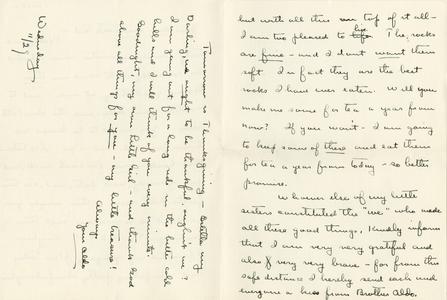 but with all this on top of it all-
I am too pleased to live. The rocks
are fine - and I don't want them
soft. In fact they are the best
rocks I have ever eaten. Will you
make me some for tea a year from
now? If you won't - I am going
to keep some of these and eat them
for tea a year from today - so better
promise.
Whoever else of my little
sisters constituted the "we" who made
all these good things. Kindly inform
that I am very very grateful and
also very very brave - for from this
safe distance I hereby send each and
everyone a kiss from Brother Aldo.
Tomorrow is Thanksgiving - Estella my
Darling, and ought to be thankful, oughtn't we?
I am going out for a long ride in the
hills and I will think of you every minute.
Goodnight, my own little Girl - and thank God
above all things for you - my little treasure!
Always
Your Aldo
Wednesday
11/2